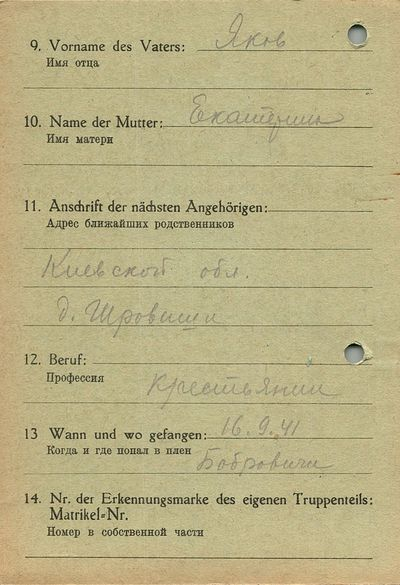 9. Vorname des Vaters: Яков
Имя отца
10. Name der Mutter: Екатерина
Имя матери
11. Anschrift der nächsten Angehörigen:
Адрес ближайших родственников
Киевской обл.
д.
12. Beruf:
Профессия Крестьянин
13 Wann und wo gefangen: 16.9.41
Когда и где попал в плен Бобровичи
14. Nr. der Erkennungsmarke des eigenen Truppenteils:
Matrikel=Nr.
Номер в собственной части